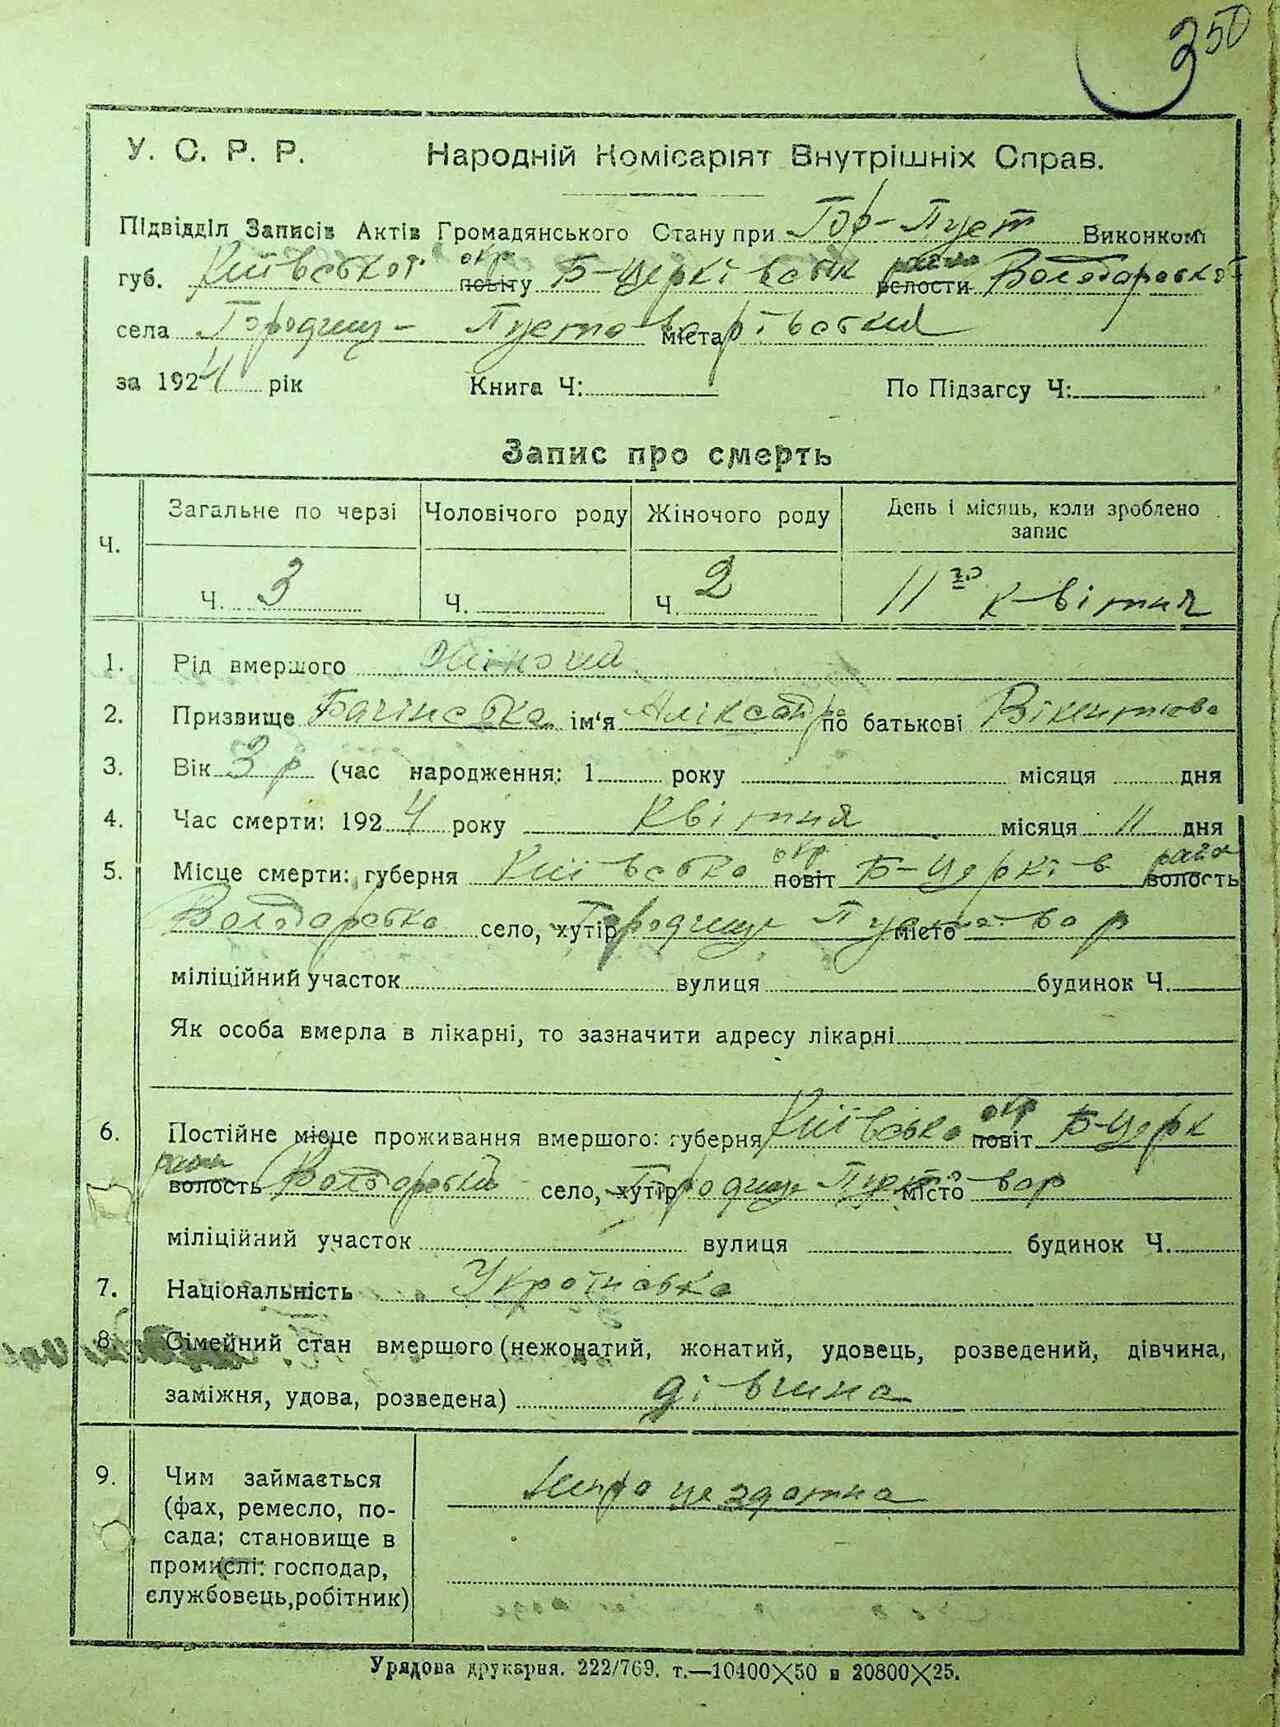 350
У. С. Р. Р. Народній Комісаріят Внутрішніх Справ.
Підвідділ Записів Актів Громадянського Стану при Гор-Пуст Виконкомі
губ. Київської окр повіту Б-Церківськ району волости Володарської
села Городище-Пустоварівський міста
за 1924 рік Книга Ч: По Підзагсу Ч:
Запис про смерть
Ч. Загальне по черзі Чоловічого роду Жіночого роду День і місяць, коли зроблено
запис
Ч. 3 Ч. Ч. 2 11го квітня
1. Рід вмершого жіночий
2. Призвище Бачінська ім'я Аліксандра по батькові Вікентіова
3. Вік 3 р (час народження: 1 року місяця дня
4. Час смерти: 1924 року квітня місяця 11 дня
5. Місце смерти: губерня Київсько окр повіт Б-Церків район волость
Володарсько село, хутір Городище Пустовар місто
міліційний участок вулиця будинок Ч.
Як особа вмерла в лікарні, то зазначити адресу лікарні
6. Постійне місце проживання вмершого: губерня Київсько окр повіт Б-Церк
район волость Володарський село, хутір Городище Пустовар місто
міліційний участок вулиця будинок Ч.
7. Національність Українська
8. Сімейний стан вмершого (нежонатий, жонатий, удовець, розведений, дівчина,
заміжня, удова, розведена) дівчина
9. Чим займається
(фах, ремесло, по-
сада; становище в
промислі: господар,
службовець, робітник)
нироцездатна
Урядова друкарня. 222/769. т.—10400×50 и 20800×25.